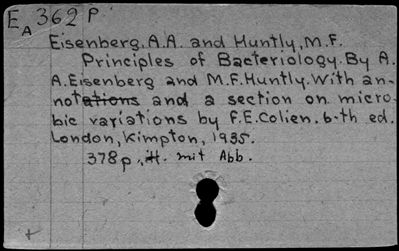 E_A 362 P
Eisenberg, A.A. and Huntly, M.F.
Principles of Bacteriology. By A.
A. Eisenberg and M.F. Huntly. With an-
notations and a section on micro-
bic variations by F.E. Colien. 6-th ed.
London, Kimpton, 1935.
378 p., It. mit Abb.